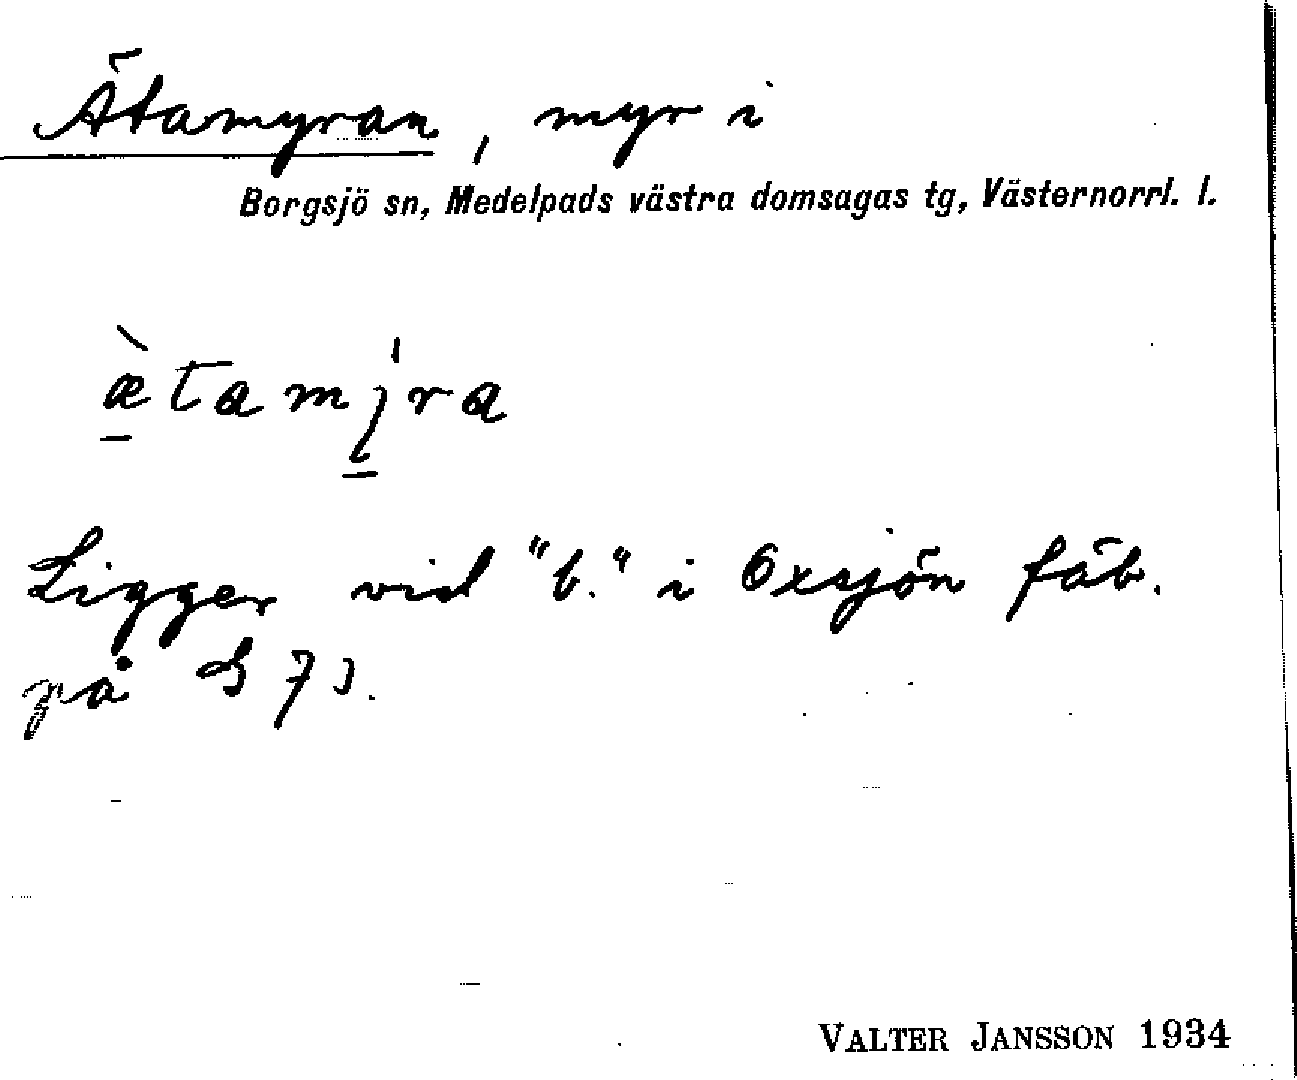 Ätamyran, myr i
Borgsjö sn, Medelpads västra domsagas tg, Västernorrl. l.
æ̀tamyra
Ligger vid "b." i Oxsjön fäb.
på S 73.
VALTER JANSSON 1934